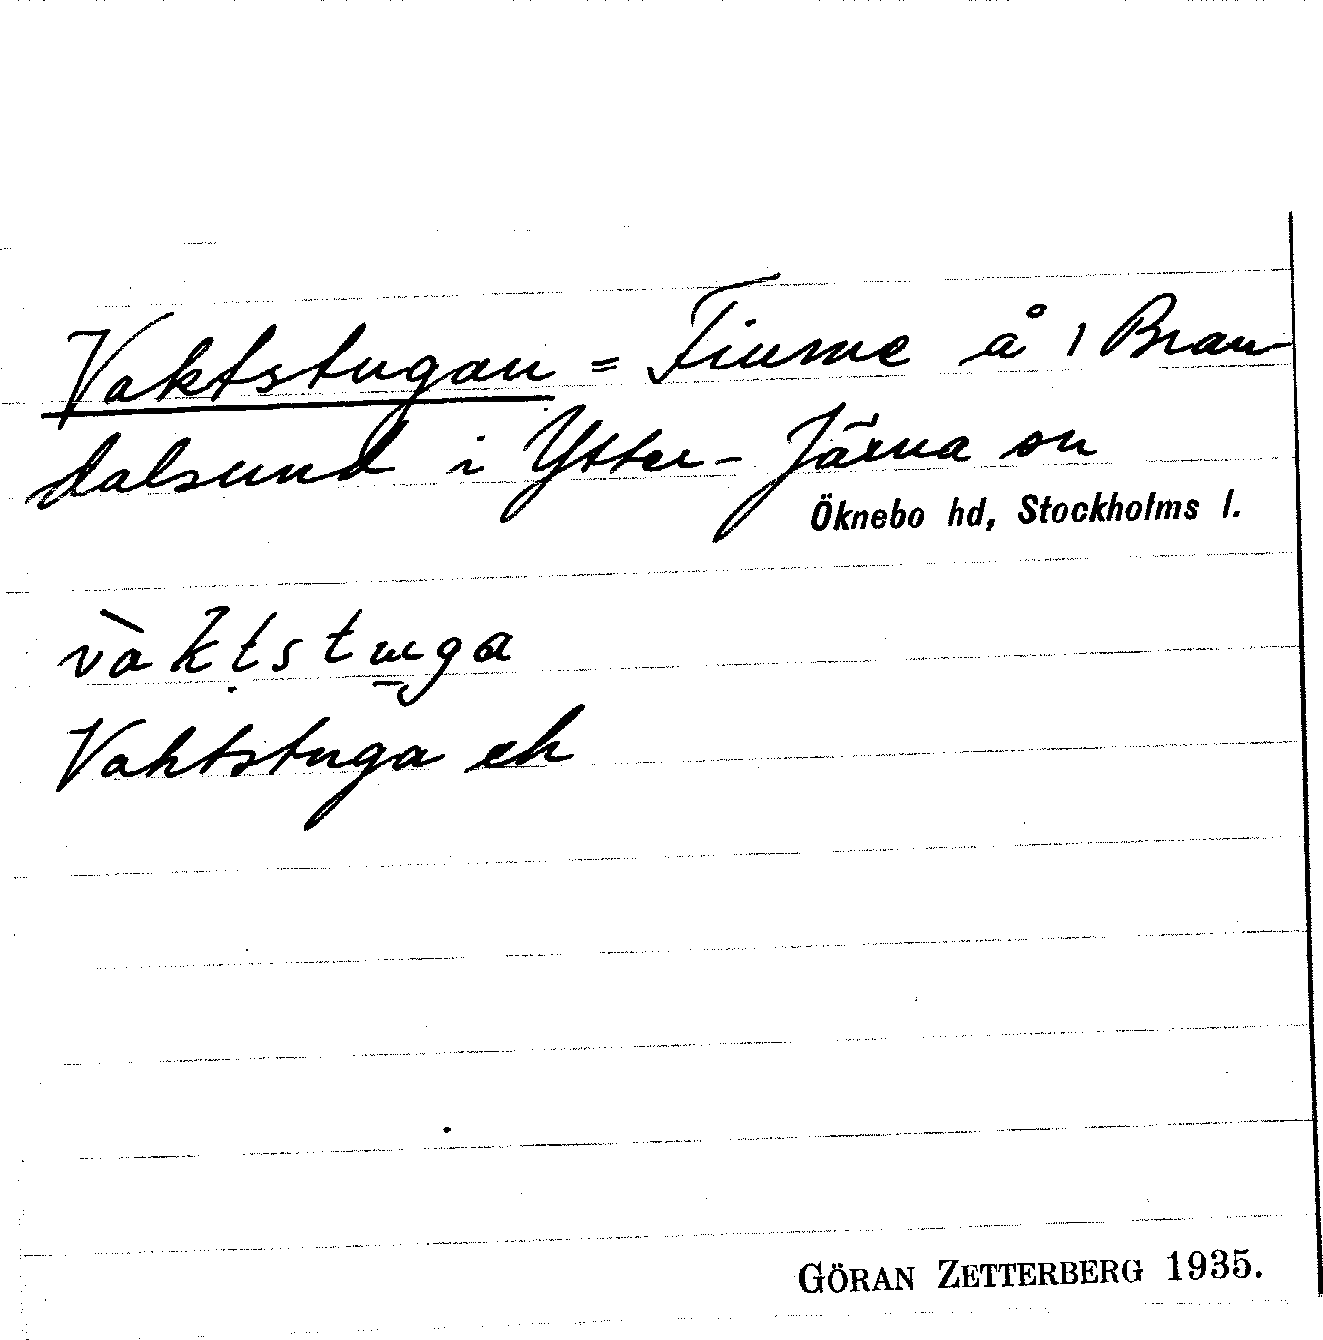 Vaktstugan = Fiume å 1 Bran-
dalsund i Ytter-Järna sn
Öknebo hd, Stockholms l.
vàktstuga
Vahtstuga ek
GÖRAN ZETTERBERG 1935.